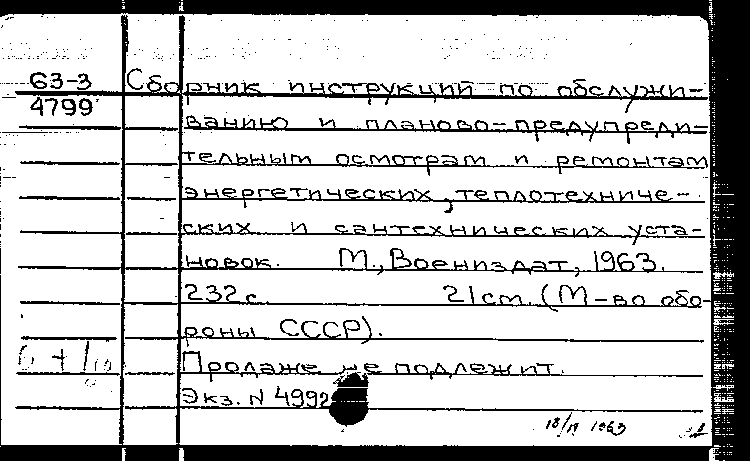 63-3 Сборник инструкций по обслужи-
4799 ванию и планово-предупреди-
тельным осмотрам и ремонтам
энергетических, теплотехниче-
ских и сантехнических уста-
новок. М., Воениздат, 1963.
232 с. 21 см. (М-во обо-
роны СССР).
Продаже не подлежит.
Экз. N 4992
18/IV 1963